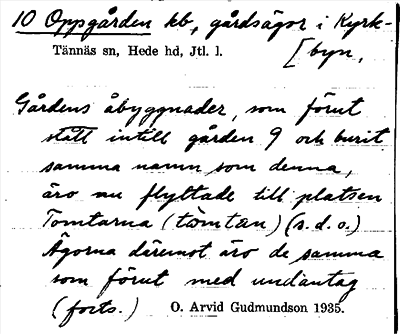 10 Oppgården kb, gårdsägor i Kyrk-
[byn,
Tännäs sn, Hede hd, Jtl. l.
Gårdens åbyggnader, som förut
stått intill gården 9 och burit
samma namn som denna,
äro nu flyttade till platsen
Tomtarna (tòmtan) (s. d. o.)
Ägorna däremot äro de samma
som förut med undantag
(forts.) O. Arvid Gudmundson 1935.